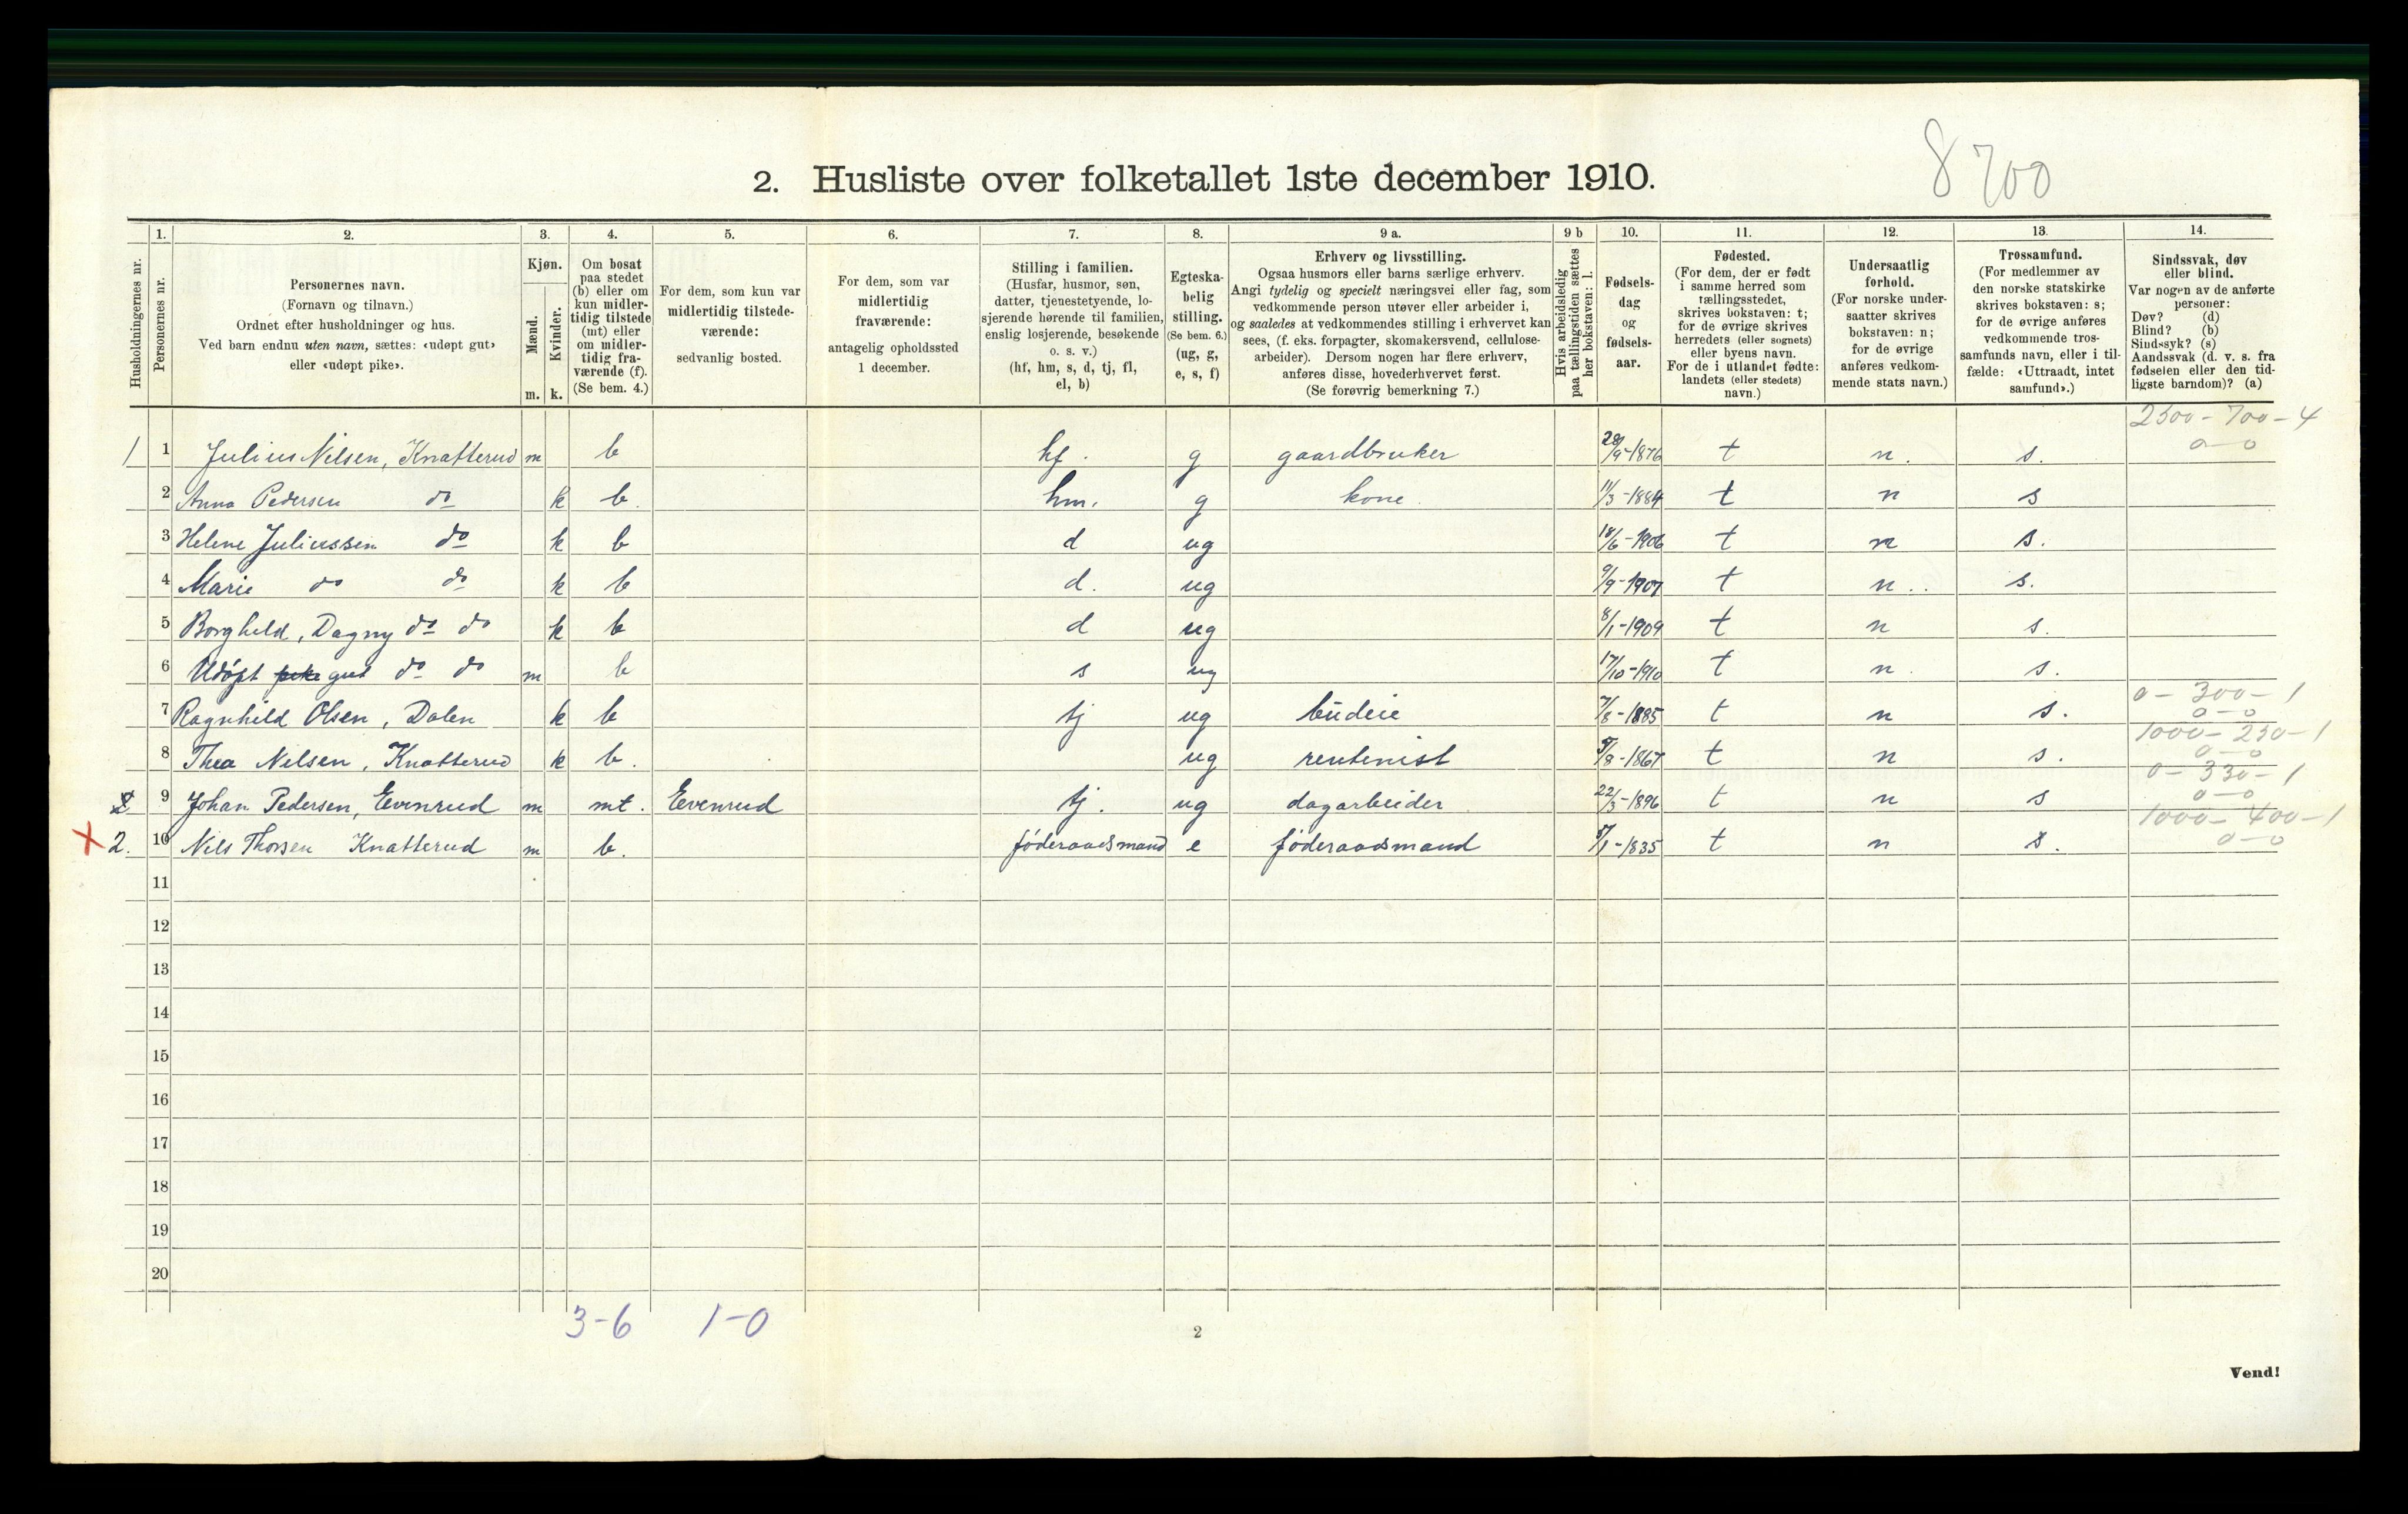 8 700
2. Husliste over folketallet 1ste december 1910.
Husholdningernes nr.
1. Personernes nr.
2. Personernes navn.
(Fornavn og tilnavn.)
Ordnet efter husholdninger og hus.
Ved barn endnu uten navn, sættes: «udøpt gut»
eller «udøpt pike».
3. Kjøn.
Mænd. m.
Kvinder. k.
4. Om bosat
paa stedet
(b) eller om
kun midler-
tidig tilstede
(mt) eller
om midler-
tidig fra-
værende (f).
(Se bem. 4.)
5. For dem, som kun var
midlertidig tilstede-
værende:
sedvanlig bosted.
6. For dem, som var
midlertidig
fraværende:
antagelig opholdssted
1 december.
7. Stilling i familien.
(Husfar, husmor, søn,
datter, tjenestetyende, lo-
sjerende hørende til familien,
enslig losjerende, besøkende
o. s. v.)
(hf, hm, s, d, tj, fl,
el, b)
8. Egteska-
belig
stilling.
(Se bem. 6.)
(ug, g,
e, s, f)
9 a. Erhverv og livsstilling.
Ogsaa husmors eller barns særlige erhverv.
Angi tydelig og specielt næringsvei eller fag, som
vedkommende person utøver eller arbeider i,
og saaledes at vedkommendes stilling i erhvervet kan
sees, (f. eks. forpagter, skomakersvend, cellulose-
arbeider). Dersom nogen har flere erhverv,
anføres disse, hovederhvervet først.
(Se forøvrig bemerkning 7.)
9 b Hvis arbeidsledig
paa tællingstiden sættes
her bokstaven: l.
10. Fødsels-
dag
og
fødsels-
aar.
11. Fødested.
(For dem, der er født
i samme herred som
tællingsstedet,
skrives bokstaven: t;
for de øvrige skrives
herredets (eller sognets)
eller byens navn.
For de i utlandet fødte:
landets (eller stedets)
navn.)
12. Undersaatlig
forhold.
(For norske under-
saatter skrives
bokstaven: n;
for de øvrige
anføres vedkom-
mende stats navn.)
13. Trossamfund.
(For medlemmer av
den norske statskirke
skrives bokstaven: s;
for de øvrige anføres
vedkommende tros-
samfunds navn, eller i til-
fælde: «Uttraadt, intet
samfund».)
14. Sindssvak, døv
eller blind.
Var nogen av de anførte
personer:
Døv? (d)
Blind? (b)
Sindssyk? (s)
Aandssvak (d. v. s. fra
fødselen eller den tid-
ligste barndom)? (a)
2500 - 700 - 4
1 1 Julius Nilsen, Knatterud m b hf. g gaardbruker 28/9-1876 t n. s. 0-0
2 Anna Pedersen do k b. hm. g kone. 11/3-1884 t n s
3 Helene Juliussen do k b d ug 18/6-1906 t n s.
4 Marie do do k b d. ug 9/9-1907 t n.. s.
5 Borghild, Dagny do do k b d ug 8/1-1909 t n s.
6 Udøpt pike gut do do m b s ug 17/10-1910 t n. s.
0 - 300 - 1
7 Ragnhild Olsen, Dalen k b tj ug budeie 7/8-1885 t n s. 0-0
1000 - 250 - 1
8 Thea Nilsen, Knatterud k b. ug rentenist 5/8-1867 t n s. 0-0
0 - 330 - 1
2 9 Johan Pedersen, Evenrud m mt. Evenrud tj. ug dagarbeider 22/3-1896 t n s 0-0
1000 - 400 - 1
X 2. 10 Nils Thorsen Knatterud m b. føderaadsmand e føderaadsmand 5/1-1835 t n s. 0-0
11
12
13
14
15
16
17
18
19
20
3-6 1-0
2
Vend!